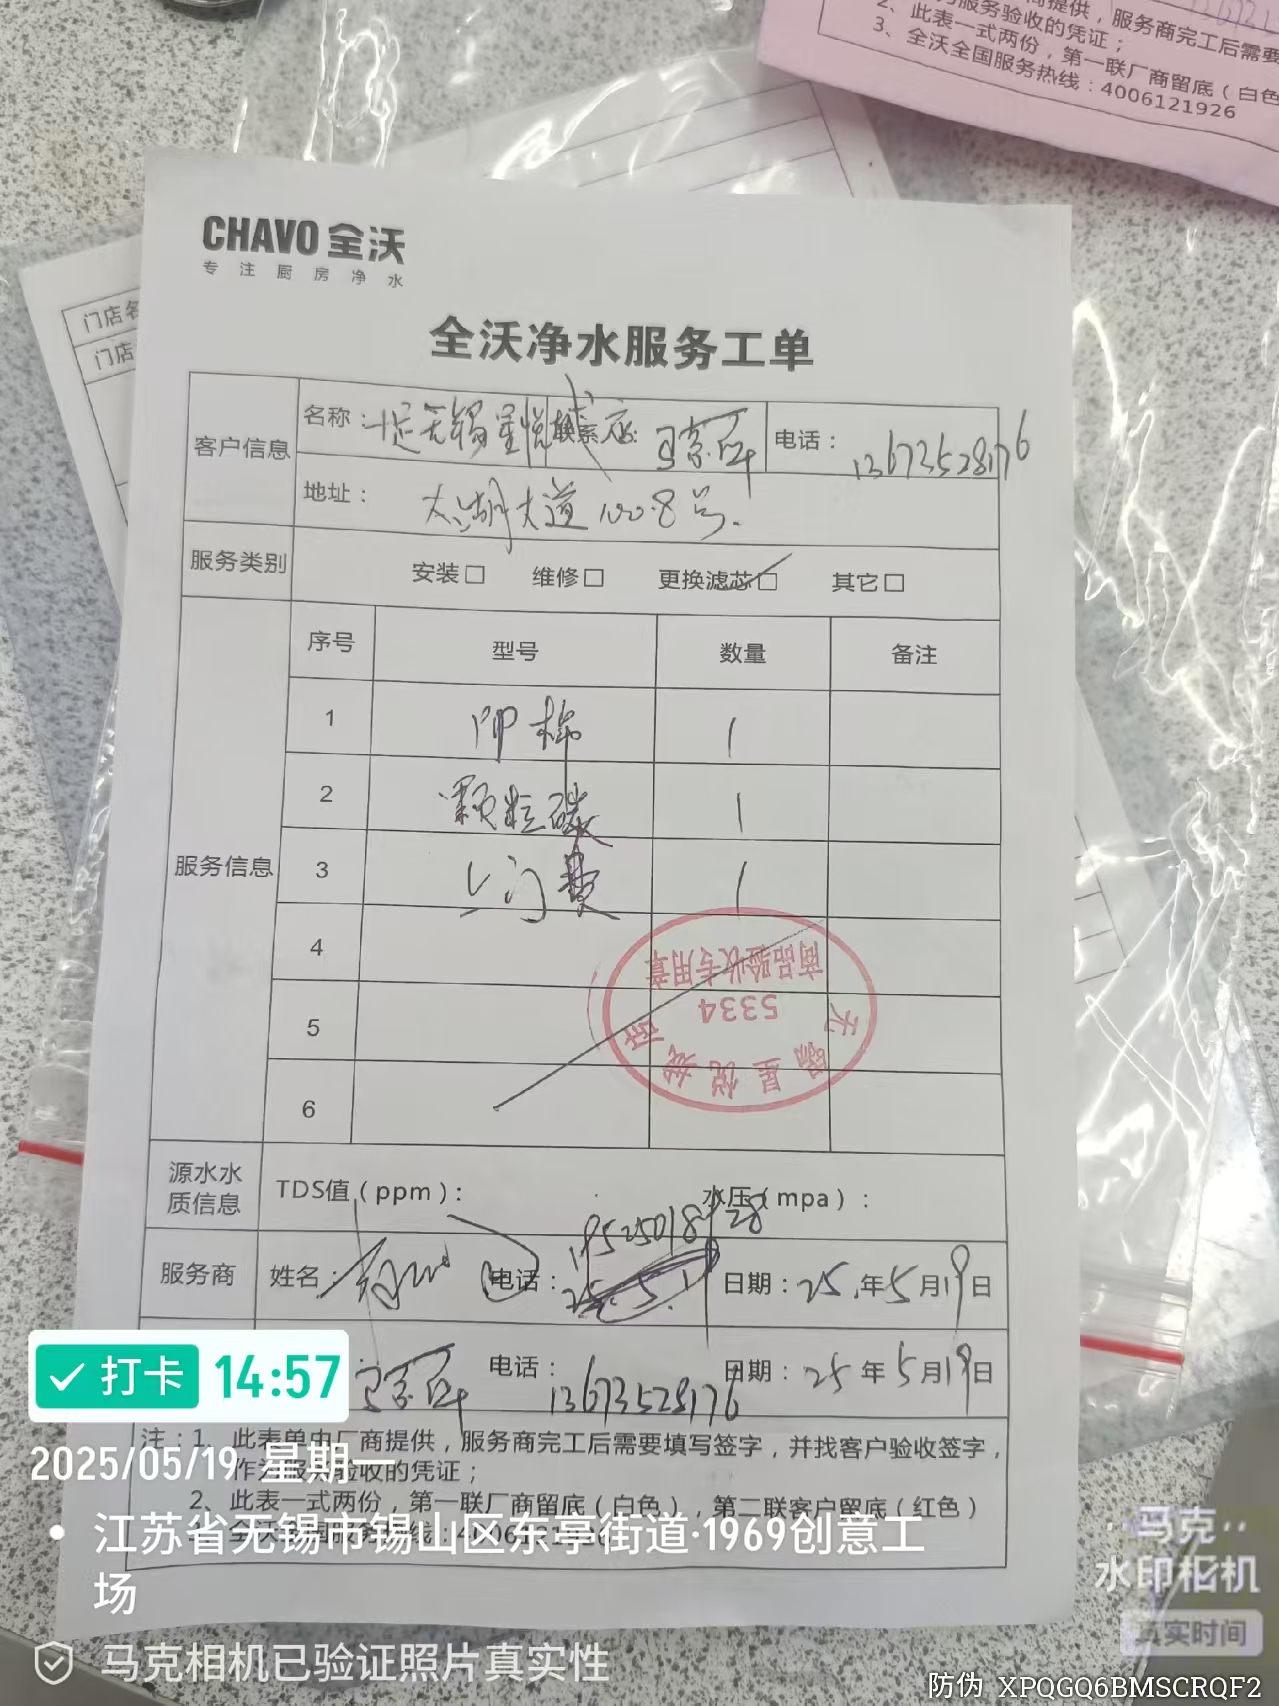 提供，服务商完工后需要
服务验收的凭证；
2、此表一式两份，第一联厂商留底（白色
3、全沃全国服务热线：4006121926
CHAVO 全沃
专注厨房净水
门店名
门店
全沃净水服务工单
客户信息
名称：无锡星悦城店 联系 电话：13673528176
地址：太湖大道1008号
服务类别 安装□ 维修□ 更换滤芯□ 其它□
服务信息
序号 型号 数量 备注
1 PP棉 1
2 颗粒碳 1
3 上门费 1
4
5
6
商品验收专用章
5334
无锡星悦城店
源水水质信息 TDS值（ppm）： 水压（mpa）：
服务商 姓名： 电话：19525018728 日期：25年5月19日
电话：13673528176 日期：25年5月19日
注：1、此表单由厂商提供，服务商完工后需要填写签字，并找客户验收签字，
作为服务验收的凭证；
2、此表一式两份，第一联厂商留底（白色），第二联客户留底（红色）
3、全沃全国服务热线：4006121926
打卡 14:57
2025/05/19 星期一
江苏省无锡市锡山区东亭街道·1969创意工
场
马克相机已验证照片真实性
马克
水印相机
真实时间
防伪 XPQGQ6BMSCRQF2